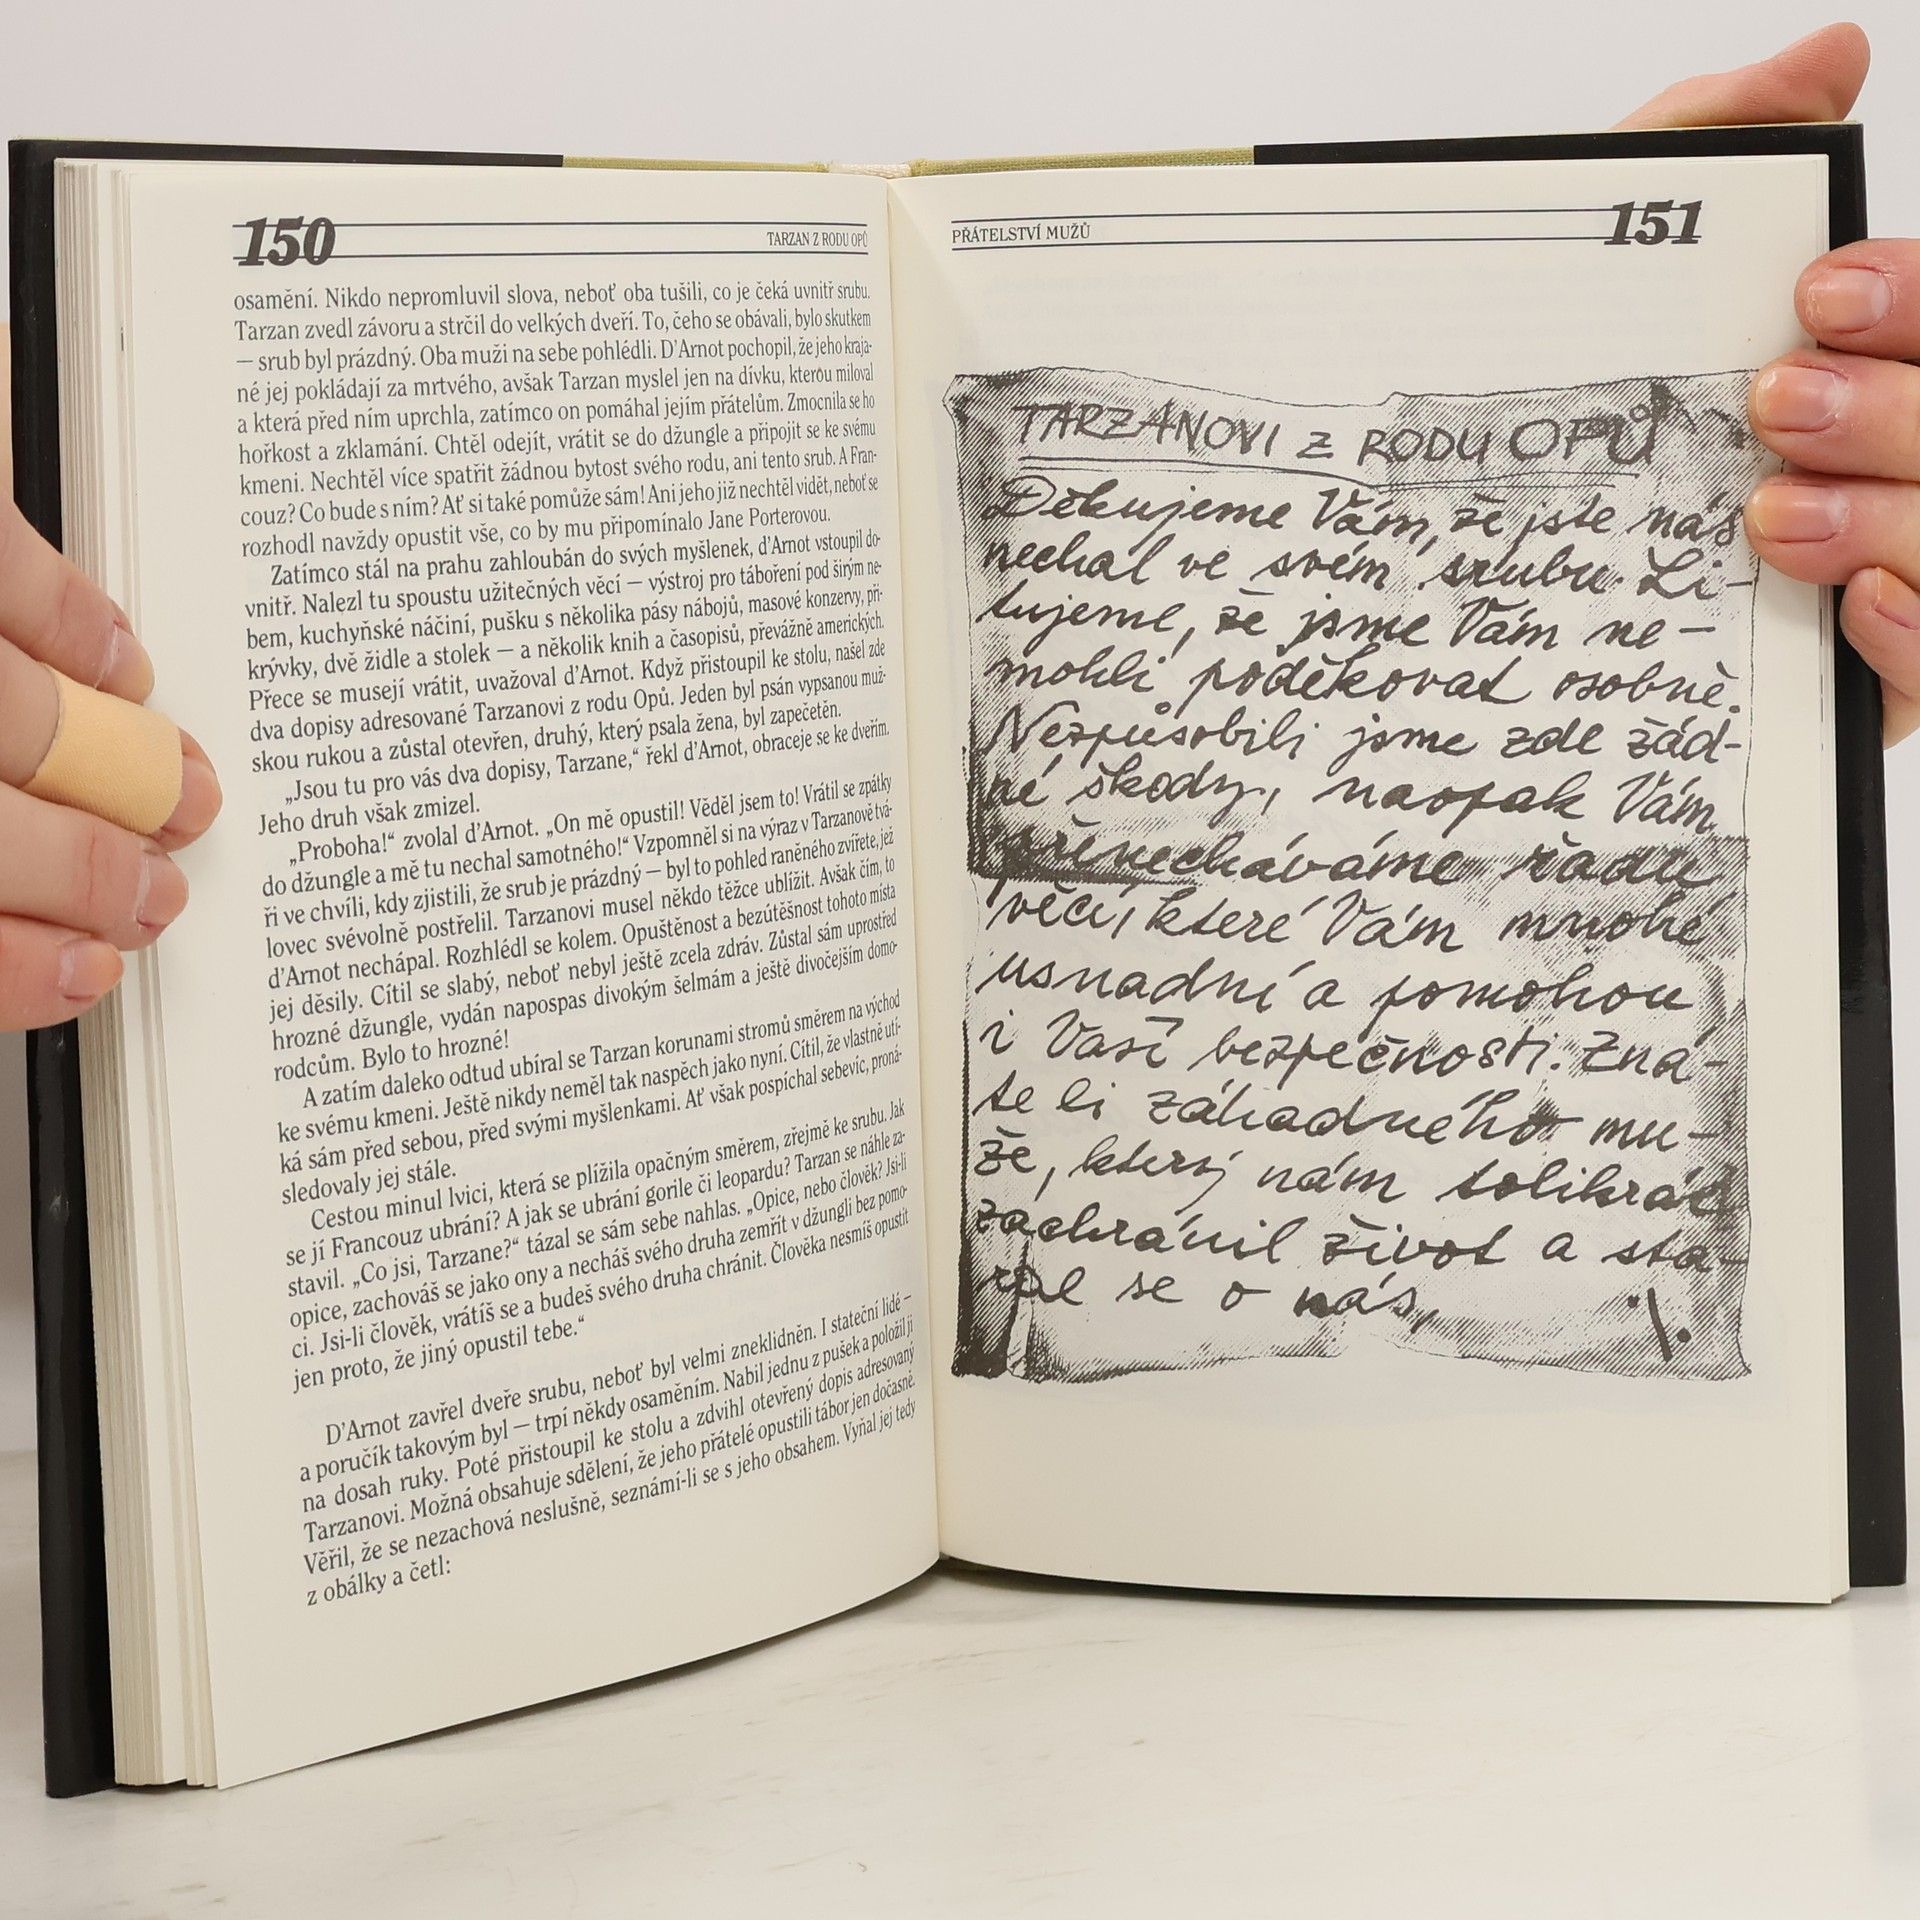 150
TARZAN Z RODU OPŮ
osamění. Nikdo nepromluvil slova, neboť oba tušili, co je čeká uvnitř srubu.
Tarzan zvedl závoru a strčil do velkých dveří. To, čeho se obávali, bylo skutkem
— srub byl prázdný. Oba muži na sebe pohlédli. D’Arnot pochopil, že jeho kraja-
né jej pokládají za mrtvého, avšak Tarzan myslel jen na dívku, kterou miloval
a která před ním uprchla, zatímco on pomáhal jejím přátelům. Zmocnila se ho
hořkost a zklamání. Chtěl odejít, vrátit se do džungle a připojit se ke svému
kmeni. Nechtěl více spatřit žádnou bytost svého rodu, ani tento srub. A Fran-
couz? Co bude s ním? Ať si také pomůže sám! Ani jeho již nechtěl vidět, neboť se
rozhodl navždy opustit vše, co by mu připomínalo Jane Porterovou.
Zatímco stál na prahu zahloubán do svých myšlenek, d’Arnot vstoupil do-
vnitř. Nalezl tu spoustu užitečných věcí — výstroj pro táboření pod širým ne-
bem, kuchyňské náčiní, pušku s několika pásy nábojů, masové konzervy, při-
krývky, dvě židle a stolek — a několik knih a časopisů, převážně amerických.
Přece se musejí vrátit, uvažoval d’Arnot. Když přistoupil ke stolu, našel zde
dva dopisy adresované Tarzanovi z rodu Opů. Jeden byl psán vypsanou muž-
skou rukou a zůstal otevřen, druhý, který psala žena, byl zapečetěn.
„Jsou tu pro vás dva dopisy, Tarzane,“ řekl d’Arnot, obraceje se ke dveřím.
Jeho druh však zmizel.
„Proboha!“ zvolal d’Arnot. „On mě opustil! Věděl jsem to! Vrátil se zpátky
do džungle a mě tu nechal samotného!“ Vzpomněl si na výraz v Tarzanově tvá-
ři ve chvíli, kdy zjistili, že srub je prázdný — byl to pohled raněného zvířete, jež
lovec svévolně postřelil. Tarzanovi musel někdo těžce ublížit. Avšak čím, to
d’Arnot nechápal. Rozhlédl se kolem. Opuštěnost a bezútěšnost tohoto místa
jej děsily. Cítil se slabý, neboť nebyl ještě zcela zdráv. Zůstal sám uprostřed
hrozné džungle, vydán napospas divokým šelmám a ještě divočejším domo-
rodcům. Bylo to hrozné!
A zatím daleko odtud ubíral se Tarzan korunami stromů směrem na východ
ke svému kmeni. Ještě nikdy neměl tak naspěch jako nyní. Cítil, že vlastně utí-
ká sám před sebou, před svými myšlenkami. Ať však pospíchal sebevíc, proná-
sledovaly jej stále.
Cestou minul lvici, která se plížila opačným směrem, zřejmě ke srubu. Jak
se jí Francouz ubrání? A jak se ubrání gorile či leopardu? Tarzan se náhle za-
stavil. „Co jsi, Tarzane?“ tázal se sám sebe nahlas. „Opice, nebo člověk? Jsi-li
opice, zachováš se jako ony a necháš svého druha zemřít v džungli bez pomo-
ci. Jsi-li člověk, vrátíš se a budeš svého druha chránit. Člověka nesmíš opustit
jen proto, že jiný opustil tebe.“
D’Arnot zavřel dveře srubu, neboť byl velmi zneklidněn. I stateční lidé —
a poručík takovým byl — trpí někdy osaměním. Nabil jednu z pušek a položil ji
na dosah ruky. Poté přistoupil ke stolu a zdvihl otevřený dopis adresovaný
Tarzanovi. Možná obsahuje sdělení, že jeho přátelé opustili tábor jen dočasně.
Věřil, že se nezachová neslušně, seznámí-li se s jeho obsahem. Vyňal jej tedy
z obálky a četl:
PŘÁTELSTVÍ MUŽŮ
151
TARZANOVI Z RODU OPŮ
Děkujeme Vám, že jste nás
nechal ve svém srubu. Li-
tujeme, že jsme Vám ne-
mohli poděkovat osobně.
Nezpůsobili jsme zde žád-
né škody, naopak Vám
přenecháváme řadu
věcí, které Vám mnohé
usnadní a pomohou
i Vaší bezpečnosti. Zná-
te li záhadného mu-
že, který nám tolikrát
zachránil život a sta-
ral se o nás,